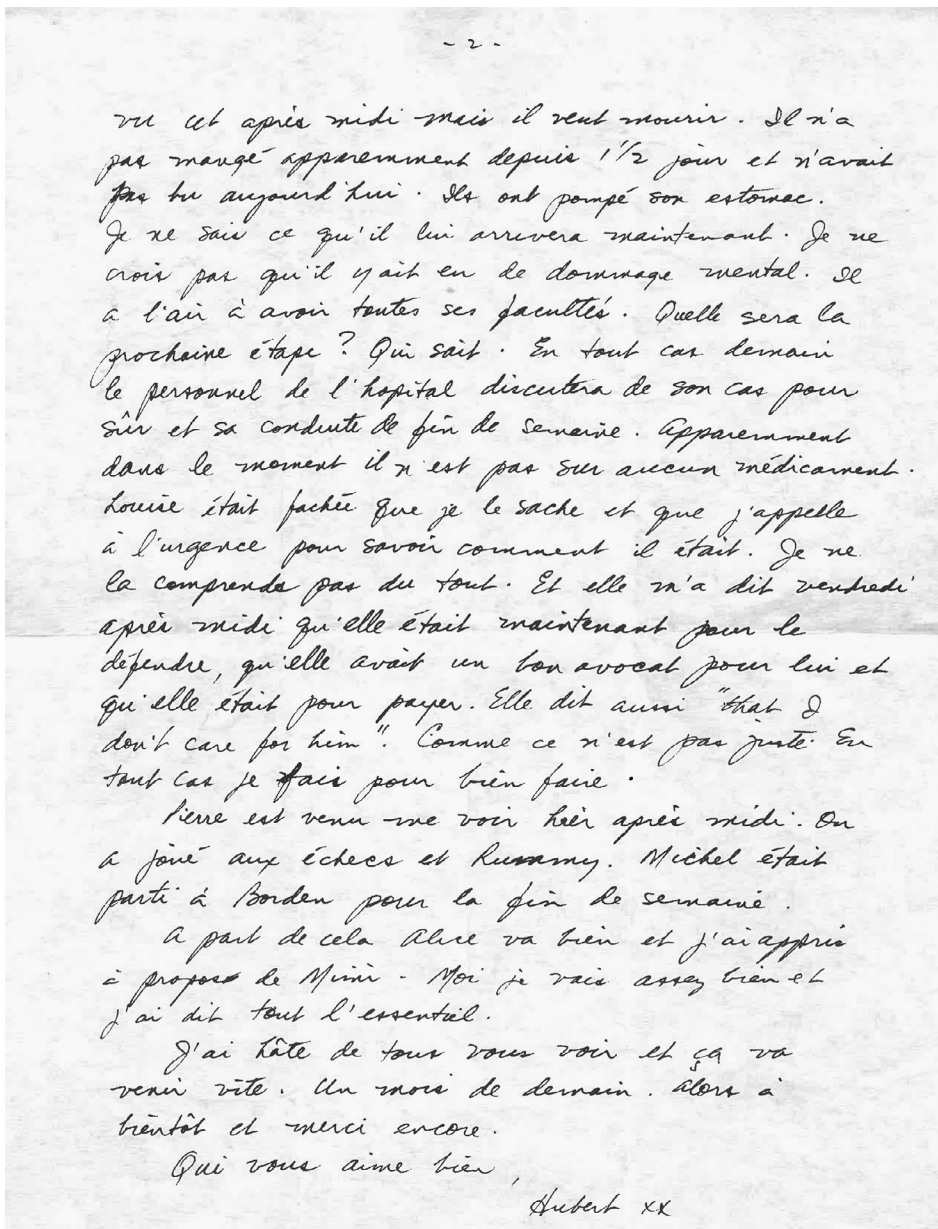 - 2 -
vu cet après midi mais il veut mourir. Il n'a
pas mangé apparemment depuis 1 1/2 jour et n'avait
pas bu aujourd'hui. Ils ont pompé son estomac.
Je ne sais ce qu'il lui arrivera maintenant. Je ne
crois pas qu'il y ait eu de dommage mental. Il
a l'air à avoir toutes ses facultés. Quelle sera la
prochaine étape ? Qui sait. En tout cas demain
le personnel de l'hopital discutera de son cas pour
sûr et sa conduite de fin de semaine. Apparemment
dans le moment il n'est pas sur aucun médicament.
Louise était fachée que je le sache et que j'appelle
à l'urgence pour savoir comment il était. Je ne
la comprends pas du tout. Et elle m'a dit vendredi
après midi qu'elle était maintenant pour le
défendre, qu'elle avait un bon avocat pour lui et
qu'elle était pour payer. Elle dit aussi "that I
don't care for him". Comme ce n'est pas juste. En
tout cas je fais pour bien faire.
Pierre est venu me voir hier après midi. On
a joué aux échecs et Rummy. Michel était
parti à Borden pour la fin de semaine.
A part de cela Alice va bien et j'ai appris
à propos de Mimi. Moi je vais assez bien et
j'ai dit tout l'essentiel.
J'ai hâte de tous vous voir et ça va
venir vite. Un mois de demain. Alors à
bientôt et merci encore.
Qui vous aime bien,
Hubert xx